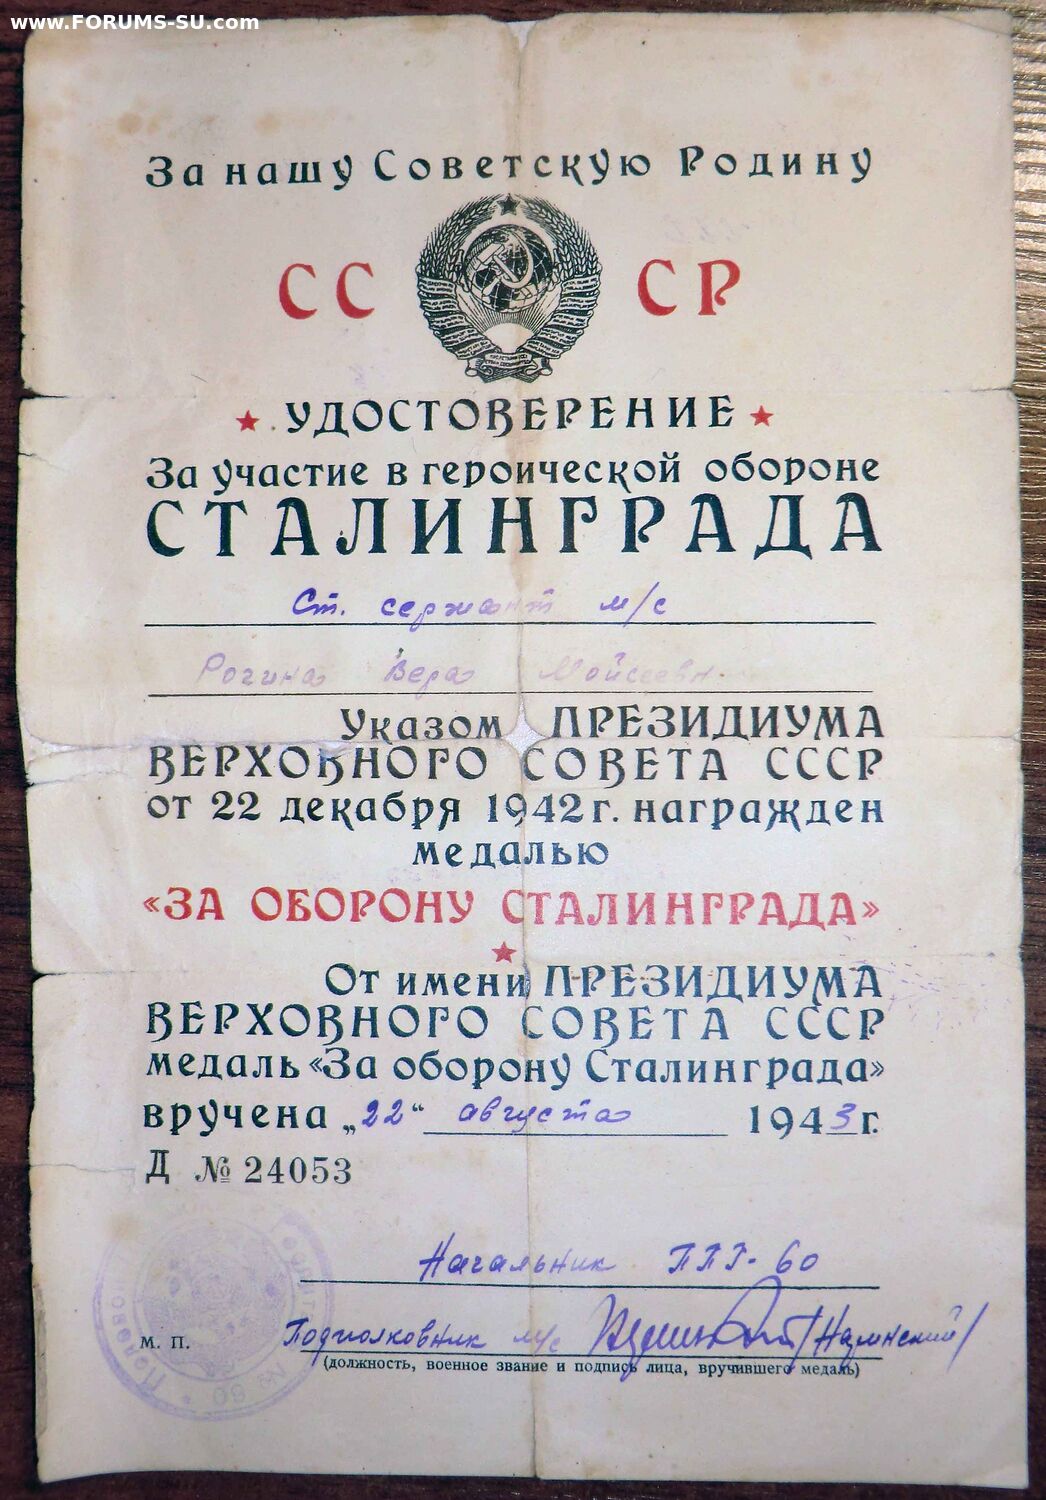 www.FORUMS-SU.com
За нашу Советскую Родину
СС СР
УДОСТОВЕРЕНИЕ
За участие в героической обороне
СТАЛИНГРАДА
Ст. сержант м/с
Рогина Вера Моисеевн.
Указом ПРЕЗИДИУМА
ВЕРХОВНОГО СОВЕТА СССР
от 22 декабря 1942 г. награжден
медалью
«ЗА ОБОРОНУ СТАЛИНГРАДА»
От имени ПРЕЗИДИУМА
ВЕРХОВНОГО СОВЕТА СССР
медаль «За оборону Сталинграда»
вручена „22“ августа 1943 г.
Д № 24053
Начальник ППГ-60
М. П. Подполковник м/с /Налинский/
(должность, военное звание и подпись лица, вручившего медаль)
№ 60